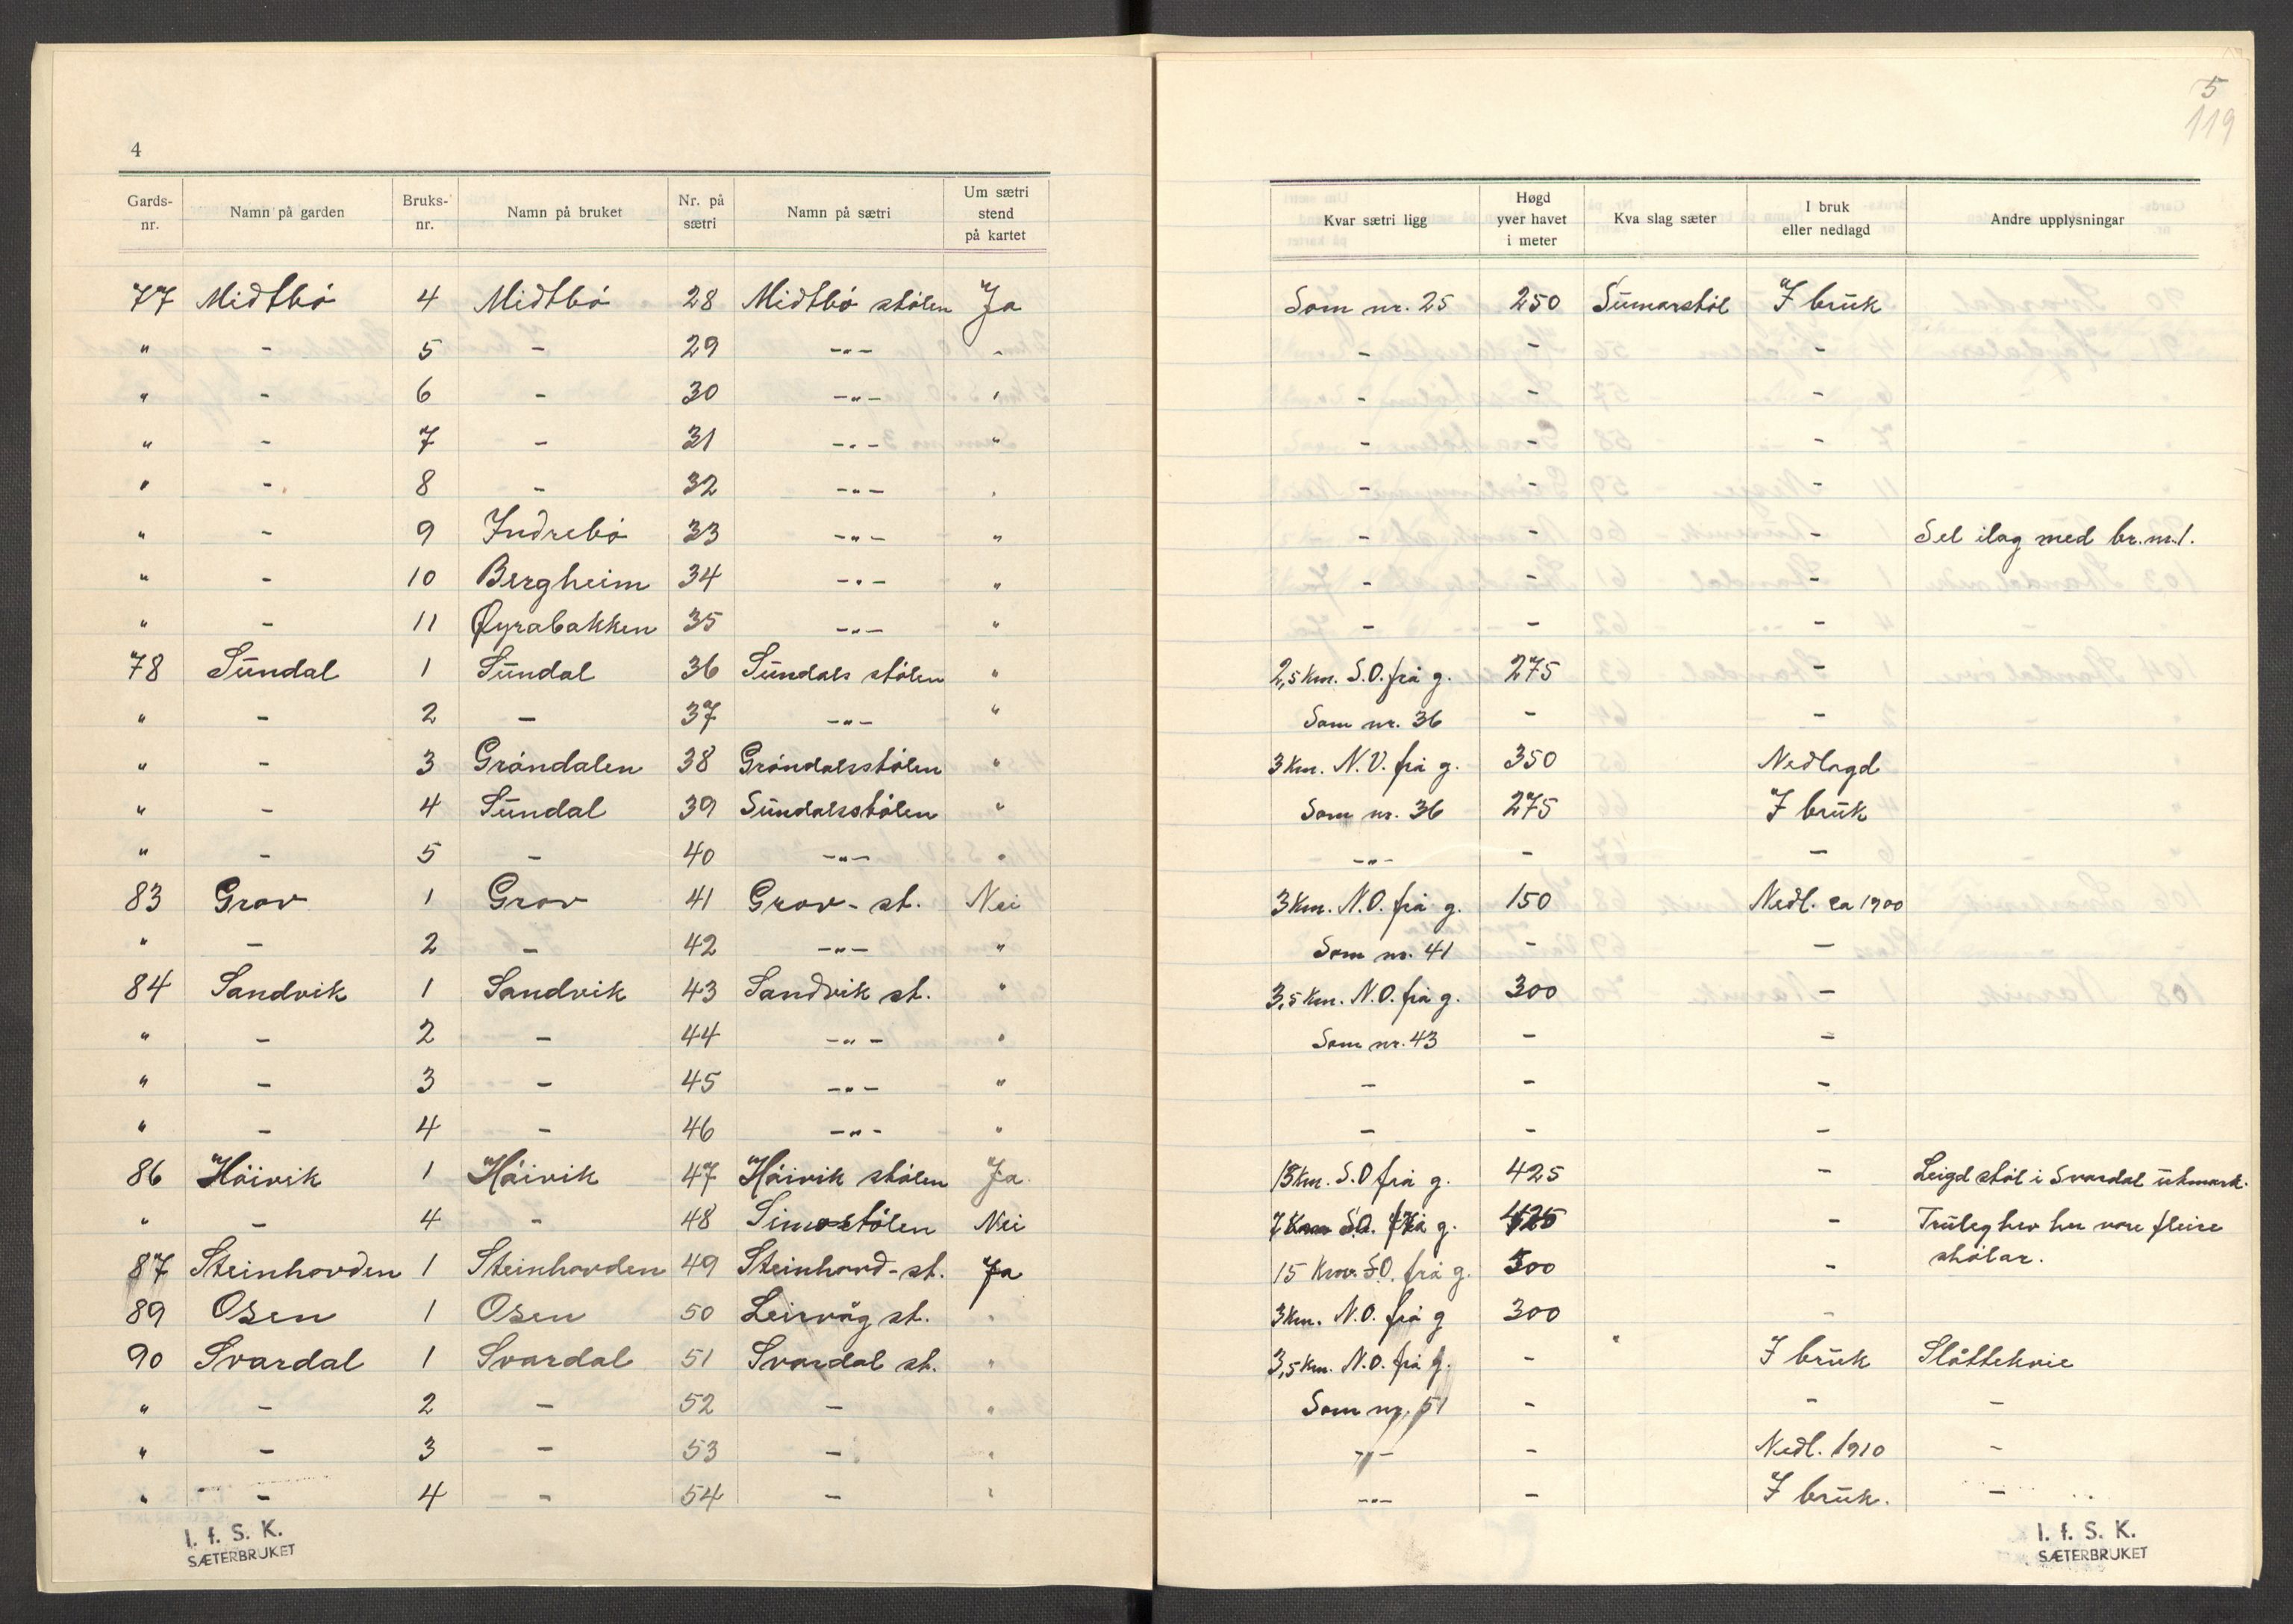 4
Gards-nr. Namn på garden Bruks-nr. Namn på bruket Nr. på sætri Namn på sætri Um sætri stend på kartet
77 Midtbö 4 Midtbö 28 Midtbö stölen Ja
" - 5 - 29 -"- "
" - 6 - 30 -"- "
" - 7 - 31 -"- "
" - 8 - 32 -"- "
" - 9 Indrebö 33 -"- "
" - 10 Bergheim 34 -"- "
" - 11 Øyrabakken 35 -"- "
78 Sŭndal 1 Sŭndal 36 Sŭndals stölen "
" - 2 - 37 -"- "
" - 3 Gröndalen 38 Gröndalsstölen "
" - 4 Sŭndal 39 Sŭndalsstölen "
" - 5 - 40 -"- "
83 Grov 1 Grov 41 Grov-st. Nei
" - 2 - 42 -"- "
84 Sandvik 1 Sandvik 43 Sandvik st. "
" - 2 - 44 -"- "
" - 3 - 45 -"- "
" - 4 - 46 -"- "
86 Höivik 1 Höivik 47 Höivik stölen Ja
" - 4 - 48 Simostölen Nei
87 Steinhovden 1 Steinhovden 49 Steinhovd-st. Ja
89 Osen 1 Osen 50 Leirvåg st. "
90 Svardal 1 Svardal 51 Svardal st. "
" - 2 - 52 - "
" - 3 - 53 - "
" - 4 - 54 - "
I. f. S. K.
SÆTERBRUKET
5
119
Kvar sætri ligg Høgd yver havet i meter Kva slag sæter I bruk eller nedlagd Andre upplysningar
Som nr. 25 250 Sŭmarstöl I brŭk
- - -
- - -
- - -
- - -
- - - Sel ilag med br.nr.1.
- - -
- - -
2,5 km. S.O. frå g. 275 -
Som nr. 36 - -
3 km. N.V. frå g. 350 Nedlagd
Som nr. 36 275 I brŭk
-"- - -
3 km. N.O. frå g. 150 Nedl. ca 1900
Som nr. 41 - -
3,5 km. N.O. frå g. 300 -
Som nr. 43 - -
- - -
- - -
13 km. S.O frå g. 425 - Leigd stöl i Svardal ŭtmark.
7 km S.O. frå g. 425 - Trŭleg hev her vore fleire
stölar.
15 km. S.O. frå g. 300 -
3 km. N.O. frå g 300 -
3,5 km. N.O. frå g. - " I brŭk Slåttekvie
Som nr. 51 - - -
-"- - Nedl. 1910 -
-"- - I brŭk. -
I. f. S. K.
SÆTERBRUKET